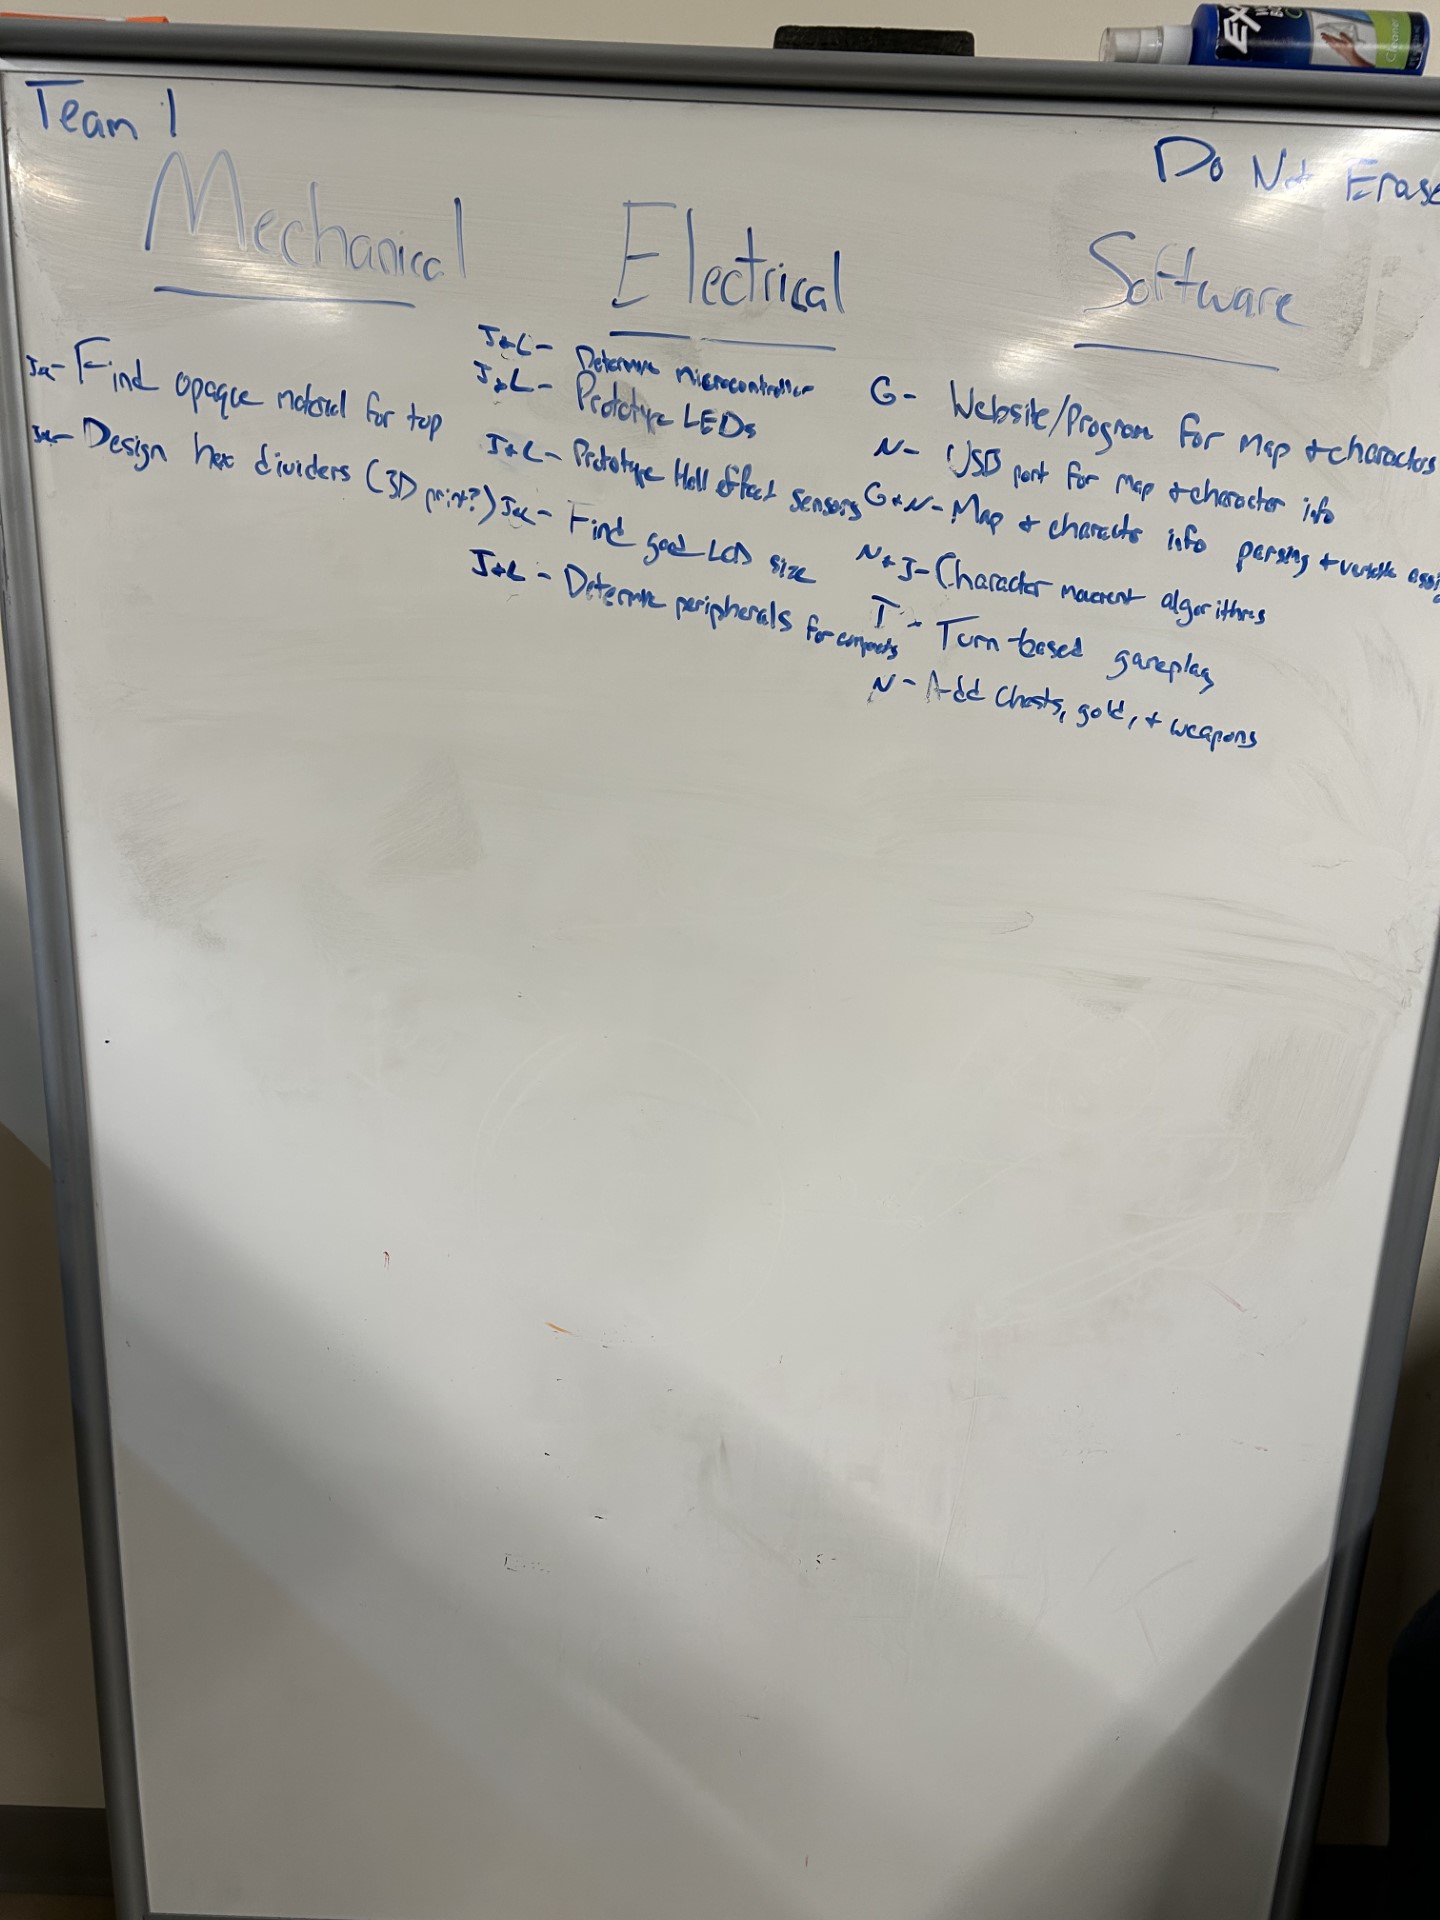 Team 1
Do Not Erase
Mechanical
Ja- Find opaque material for top
Ja- Design hex dividers (3D print?)
Electrical
J+L- Determine microcontroller
J+L- Prototype LEDs
J+L- Prototype Hall effect sensors
Ja- Find good LCD size
J+L- Determine peripherals for
Software
G- Website/Program for map + characters
N- USB port for map + character info
G+N- Map + character info parsing + variable
N+J- Character movement algorithms
T- Turn-based gameplay
N- Add Chests, gold, + weapons
EX
Cleaner